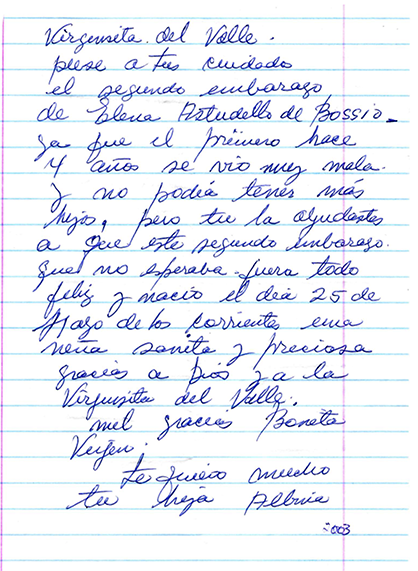 Virgensita del Valle.
puse a tus cuidado
el segundo embarazo
de Elena Astudello de Bossio_
ya que el primero hace
4 años se vio muy mala.
y no podia tener más
hijo, pero tu la alludastes
a que este segundo embarazo.
que no esperaba fuera todo
feliz y nacio el dia 25 de
Mayo de los corrientes una
niña sanita y preciosa
gracias a Dios y a la
Virgensita del Valle.
mil gracias Boneta
Vergen.
te quiero mucho
tu hija Albina
003